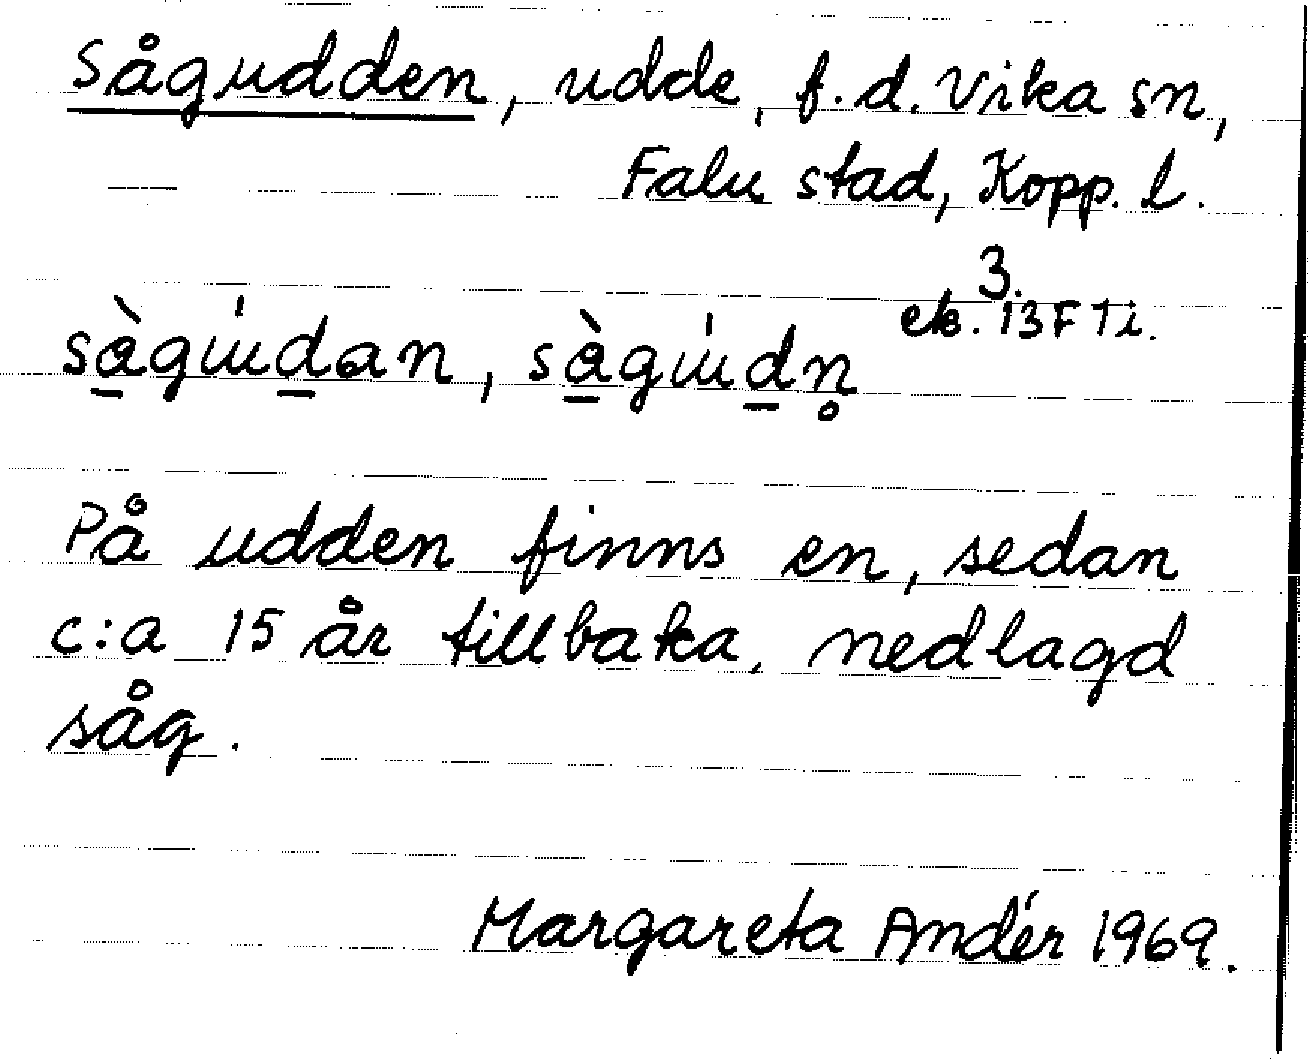 Sågudden, udde, f.d. Vika sn,
Falu stad, Kopp. l.
3.
ek. 13F 7i.
sàgɯ́dan, sàgɯ́dn̥
På udden finns en, sedan
c:a 15 år tillbaka, nedlagd
såg.
Margareta Andér 1969.